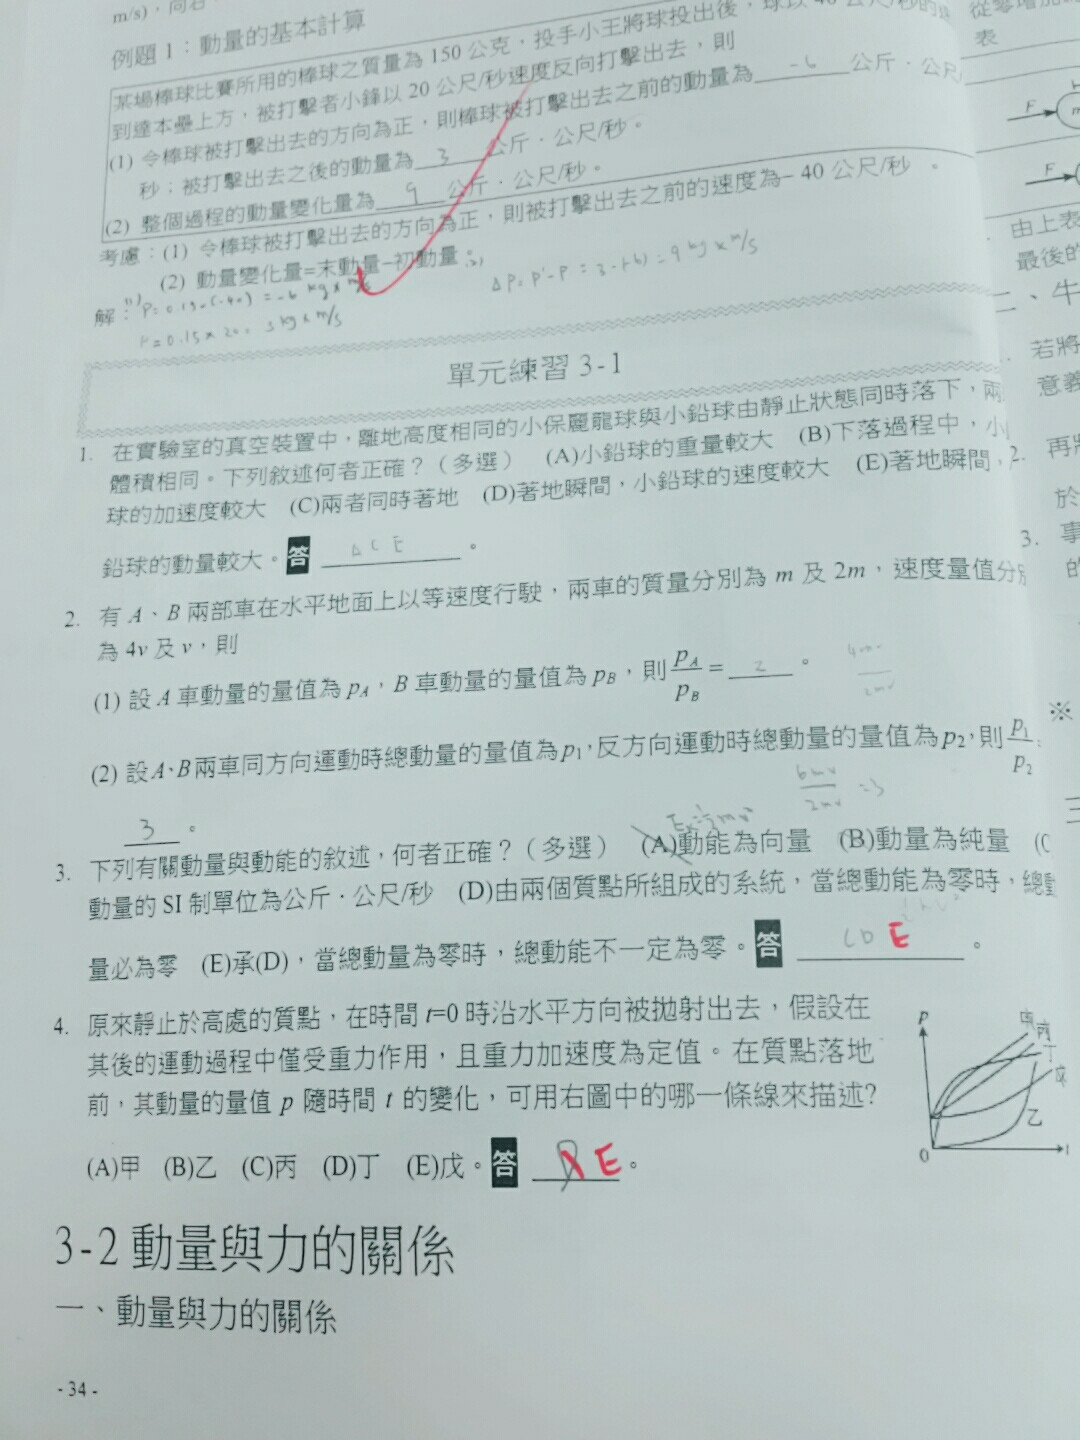 m/s)，向右
例題 1：動量的基本計算
某場棒球比賽所用的棒球之質量為 150 公克，投手小王將球投出後，球以 40 公尺/秒的
到達本壘上方，被打擊者小鋒以 20 公尺/秒速度反向打擊出去，則
(1) 令棒球被打擊出去的方向為正，則棒球被打擊出去之前的動量為 -6 公斤．公尺/
秒；被打擊出去之後的動量為 3 公斤．公尺/秒。
(2) 整個過程的動量變化量為 9 公斤．公尺/秒。
考慮：(1) 令棒球被打擊出去的方向為正，則被打擊出去之前的速度為- 40 公尺/秒 。
(2) 動量變化量=末動量-初動量
解： (1) P=0.15×(-40) = -6 kg × m/s
P=0.15×20= 3 kg × m/s
ΔP= P'-P = 3-(-6) = 9 kg × m/s
單元練習 3-1
1. 在實驗室的真空裝置中，離地高度相同的小保麗龍球與小鉛球由靜止狀態同時落下，兩
體積相同。下列敘述何者正確？（多選） (A)小鉛球的重量較大 (B)下落過程中，小
球的加速度較大 (C)兩者同時著地 (D)著地瞬間，小鉛球的速度較大 (E)著地瞬間，
鉛球的動量較大。答 A C E 。
2. 有 A、B 兩部車在水平地面上以等速度行駛，兩車的質量分別為 m 及 2m，速度量值分別
為 4v 及 v，則
(1) 設 A 車動量的量值為 pA，B 車動量的量值為 pB，則 pA/pB = 2 。
4mv/2mv
(2) 設A、B兩車同方向運動時總動量的量值為p1，反方向運動時總動量的量值為p2，則 p1/p2
6mv/2mv =3
3 。
3. 下列有關動量與動能的敘述，何者正確？（多選） (A)動能為向量 (B)動量為純量 (C
動量的 SI 制單位為公斤．公尺/秒 (D)由兩個質點所組成的系統，當總動能為零時，總動
量必為零 (E)承(D)，當總動量為零時，總動能不一定為零。答 CD E 。
4. 原來靜止於高處的質點，在時間 t=0 時沿水平方向被拋射出去，假設在
其後的運動過程中僅受重力作用，且重力加速度為定值。在質點落地
前，其動量的量值 p 隨時間 t 的變化，可用右圖中的哪一條線來描述?
(A)甲 (B)乙 (C)丙 (D)丁 (E)戊。答 E 。
P
甲
丙
丁
戊
乙
0
t
3-2 動量與力的關係
一、動量與力的關係
- 34 -
從零增加
表
F
m
F
由上表
最後的
二、牛
若將
意義
2. 再將
於
3. 事
的
※
三